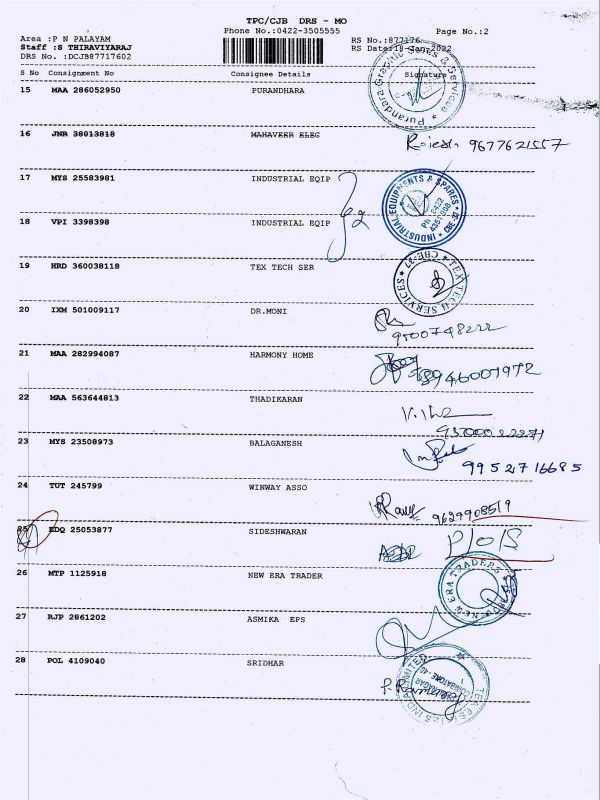 TPC/CJB DRS - MO
Phone No.:0422-3505555 Page No.:2
Area :P N PALAYAM RS No.:877176
Staff :S THIRAVIYARAJ RS Date:18-Jan-2022
DRS No. :DCJB87717602
S No Consignment No Consignee Details Signature
15 MAA 286052950 PURANDHARA
Purandara Graphic Sales & Services
16 JNR 38013818 MAHAVEER ELEC
9677621557
17 MYS 25583981 INDUSTRIAL EQIP
INDUSTRIAL EQUIPMENTS & SPARES
Ph: 0422
4351398
CBE-37
18 VPI 3398398 INDUSTRIAL EQIP
19 HRD 360038118 TEX TECH SER
TEX TECH SERVICES CBE-37
20 IXM 501009117 DR.MONI
9500748222
21 MAA 282994087 HARMONY HOME
8946007972
22 MAA 563644813 THADIKARAN
23 MYS 23508973 BALAGANESH
9952716685
24 TUT 245799 WINWAY ASSO
9629908519
25 EDQ 25053877 SIDESHWARAN
26 MTP 1125918 NEW ERA TRADER
NEW ERA TRADERS
27 RJP 2861202 ASMIKA EPS
28 POL 4109040 SRIDHAR